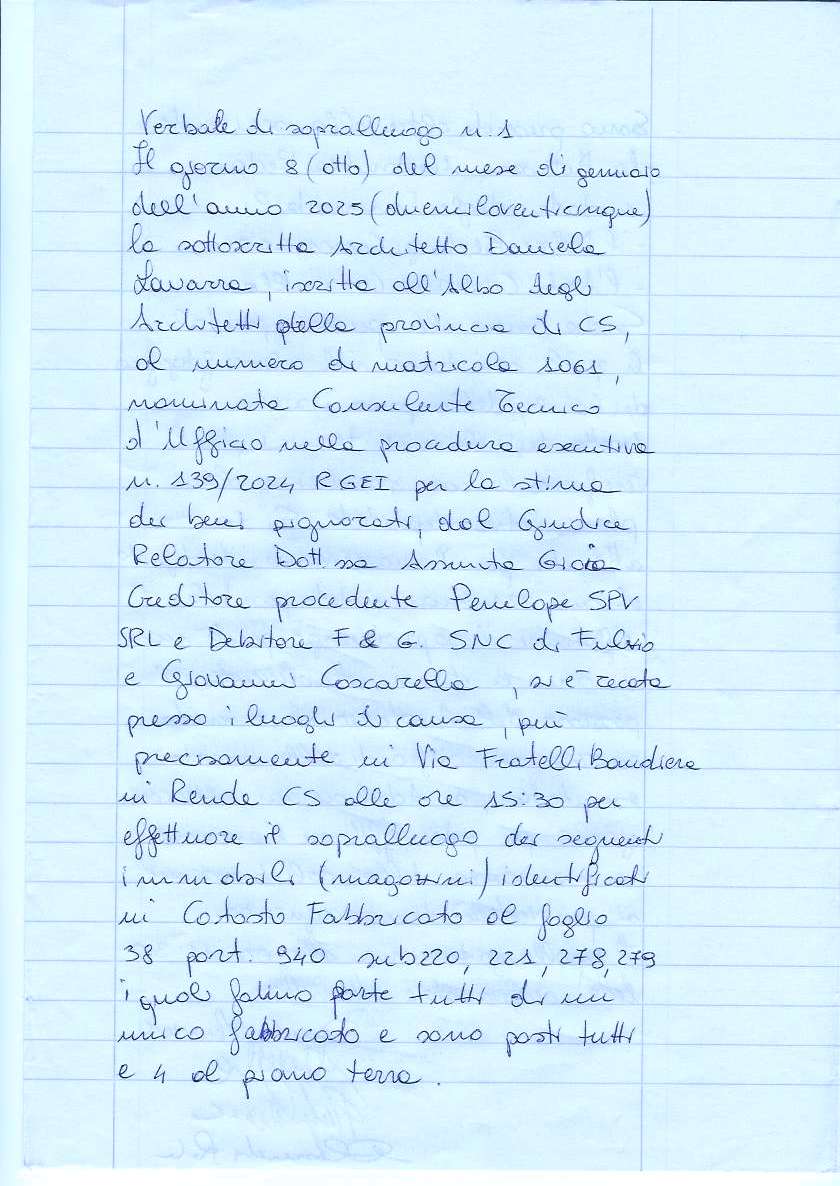 Verbale di sopralluogo n. 1
Il giorno 8 (otto) del mese di gennaio
dell'anno 2025 (duemilaventicinque)
la sottoscritta Architetto Daniela
Lavarra, iscritta all'Albo degli
Architetti della provincia di CS,
al numero di matricola 1061,
nominata Consulente Tecnico
d'Ufficio nella procedura esecutiva
n. 139/2024 RGEI per la stima
dei beni pignorati, dal Giudice
Relatore Dott.ssa Assunta Gioia
Creditore procedente Penelope SPV
SRL e Debitore F & G. SNC di Fulvio
e Giovanni Coscarella, si è recata
presso i luoghi di causa, più
precisamente in Via Fratelli Bandiera
in Rende CS alle ore 15:30 per
effettuare il sopralluogo dei seguenti
immobili (magazzini) identificati
in Catasto Fabbricato al foglio
38 part. 940 sub 220, 221, 278, 279
i quali fanno parte tutti di un
unico fabbricato e sono posti tutti
e 4 al piano terra.